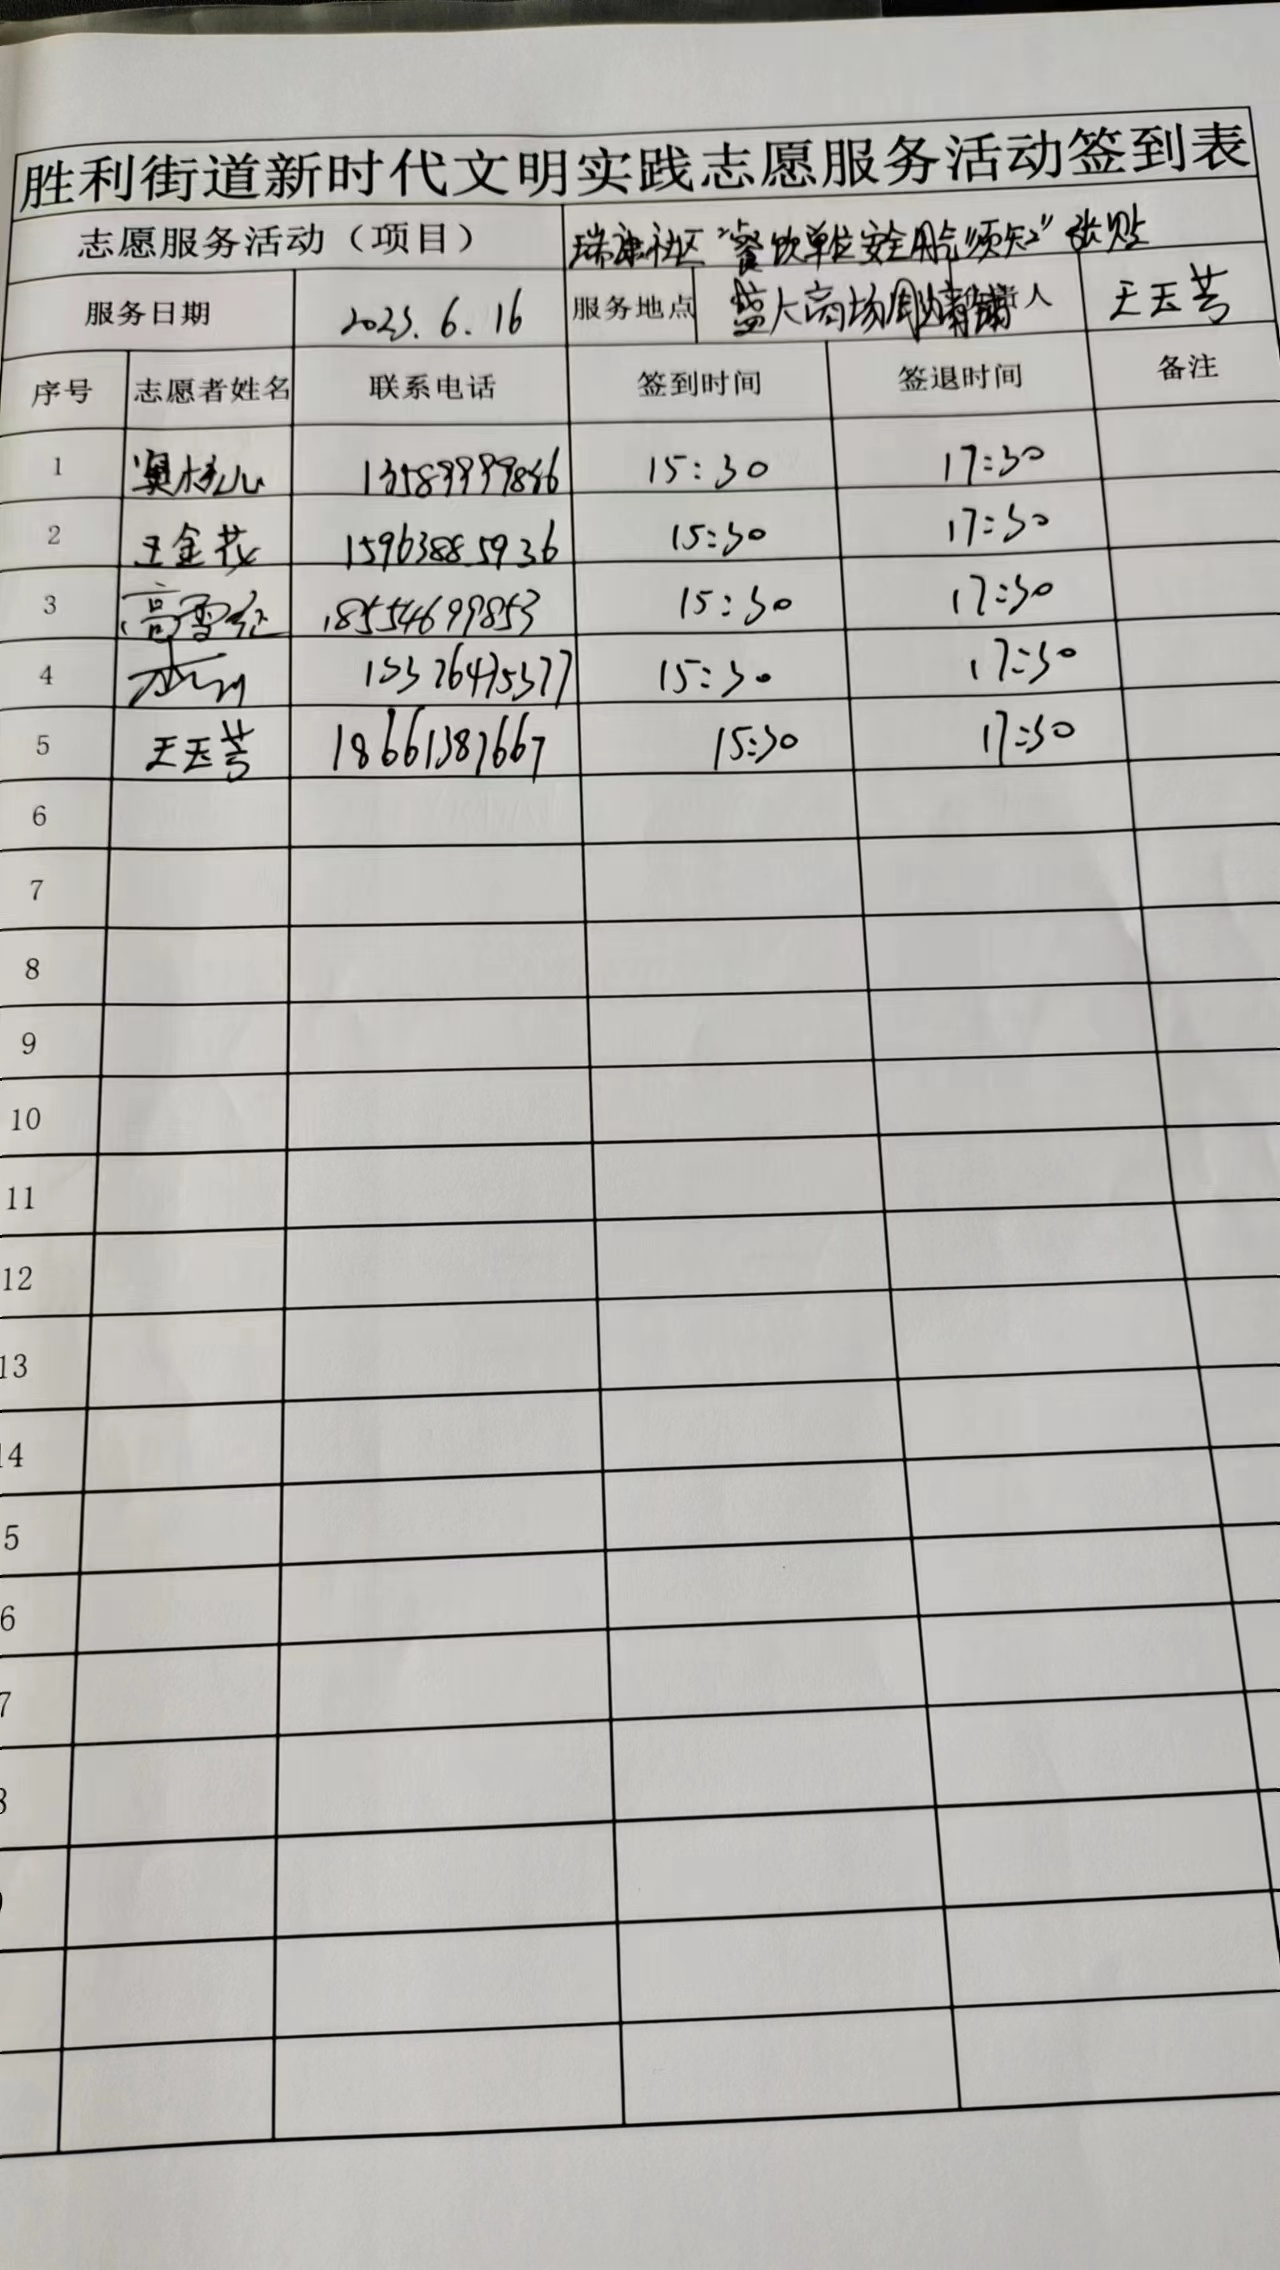 胜利街道新时代文明实践志愿服务活动签到表
志愿服务活动（项目） 瑞康社区“餐饮单位安全用气须知”张贴
服务日期 2023.6.16 服务地点 盛大商场周边商铺 人 王玉芳
序号 志愿者姓名 联系电话 签到时间 签退时间 备注
1 15:30 17:30
2 王金花 15963885936 15:30 17:30
3 高雪红 18554699853 15:30 17:30
4 13376475377 15:30 17:30
5 王玉芳 18661387667 15:30 17:30
6
7
8
9
10
11
12
13
14
5
6
7
8